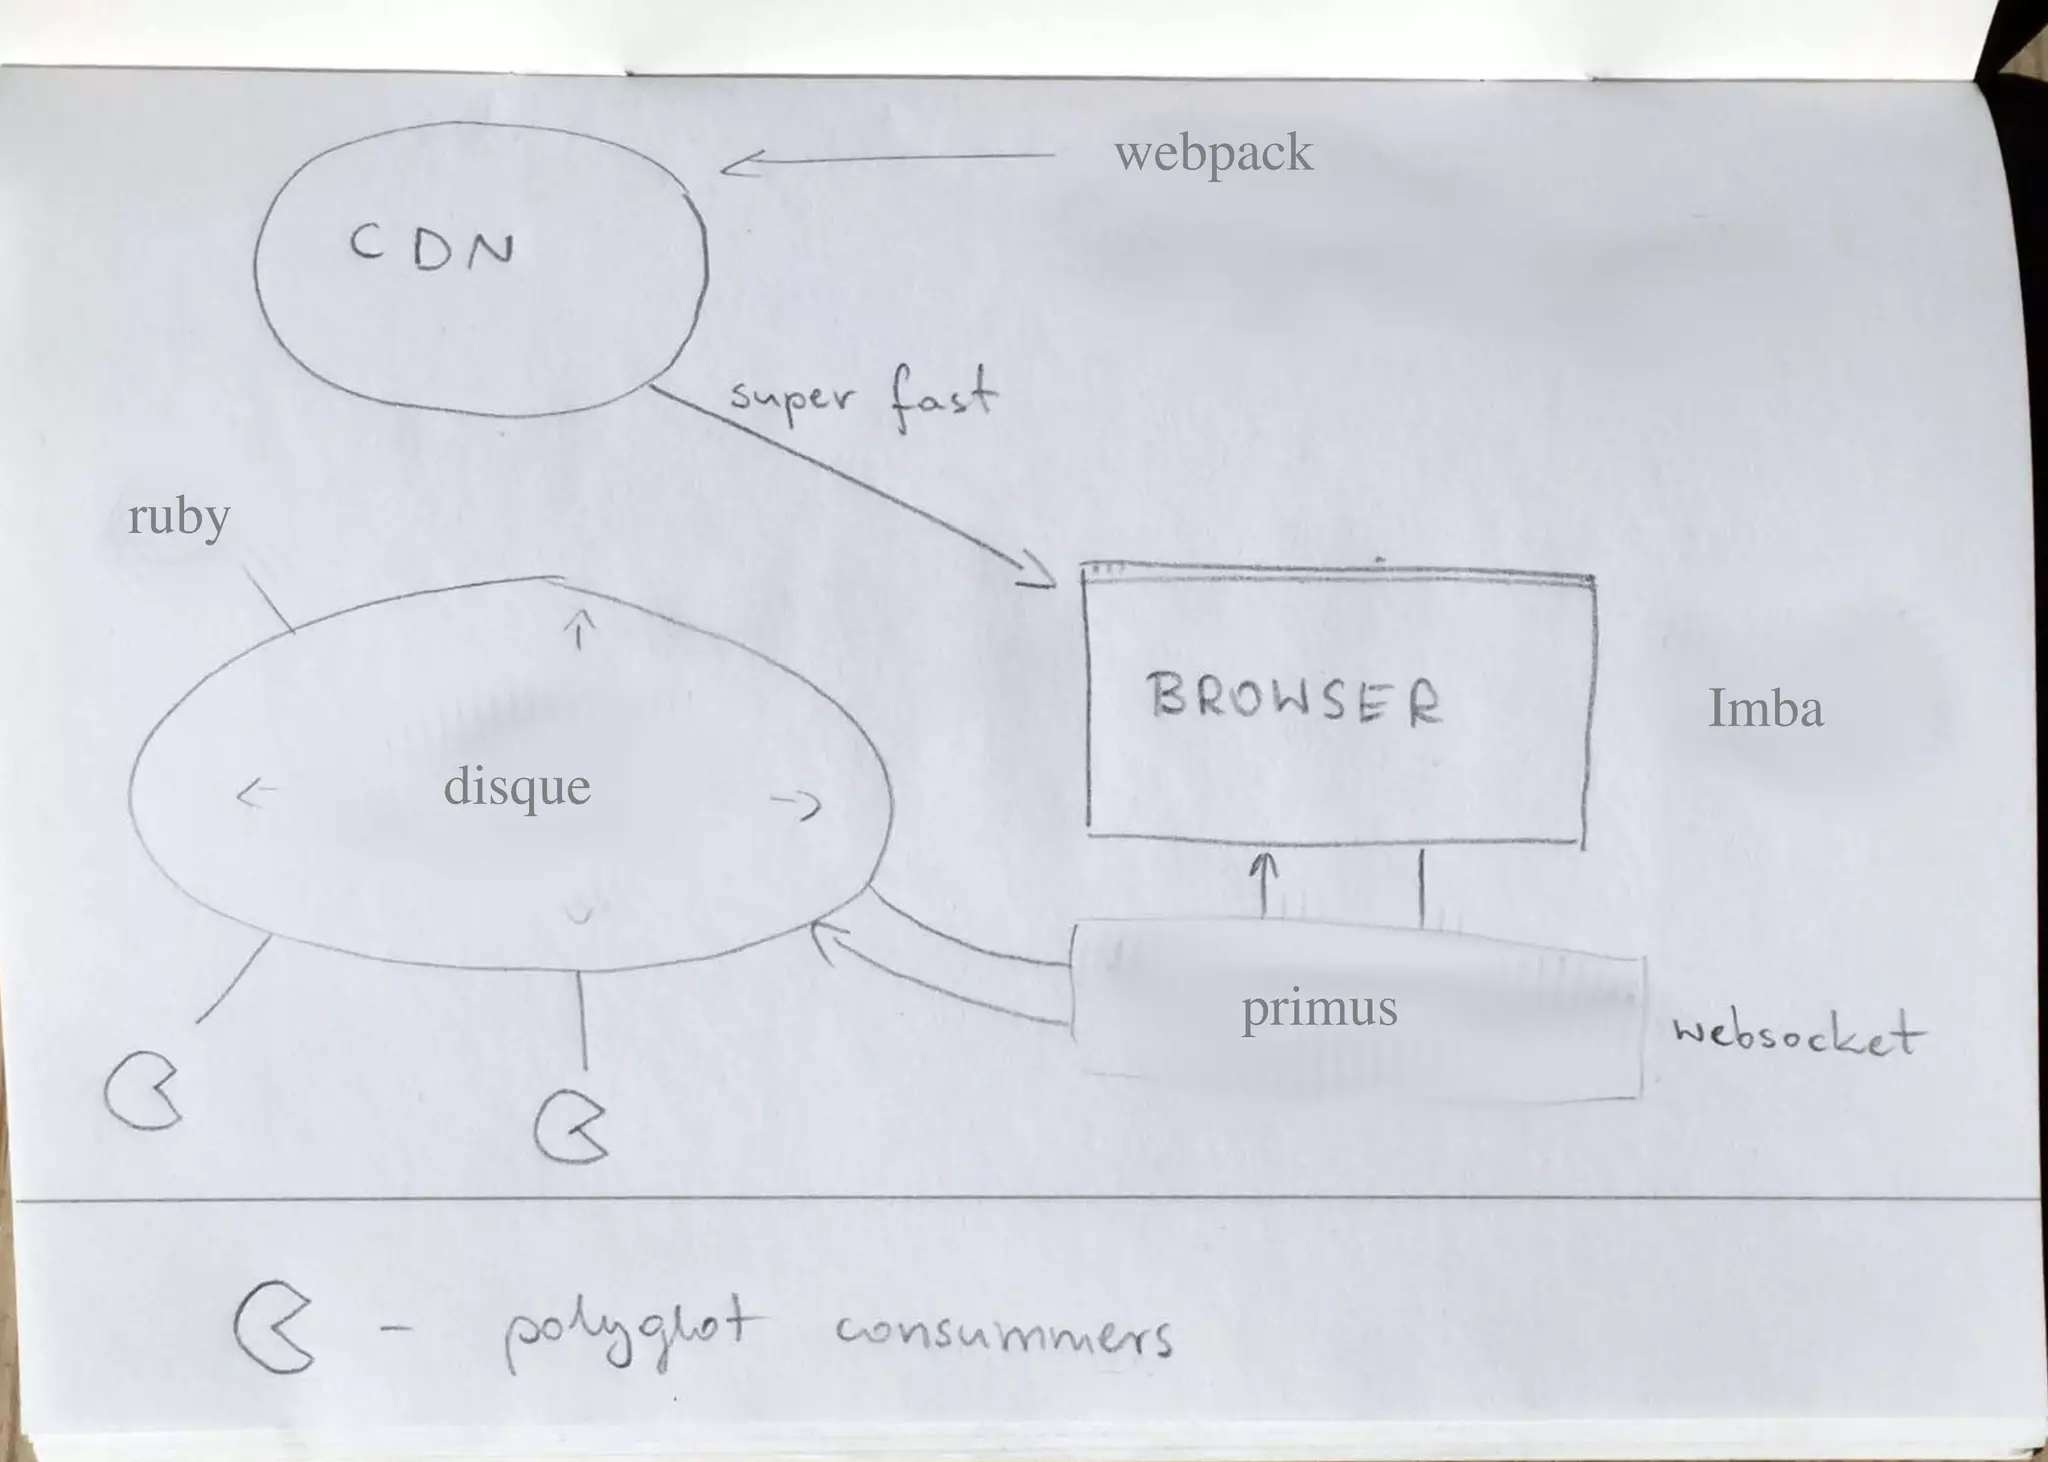 webpack
CDN
super fast
ruby
BROWSER
Imba
disque
primus
websocket
- polyglot consummers